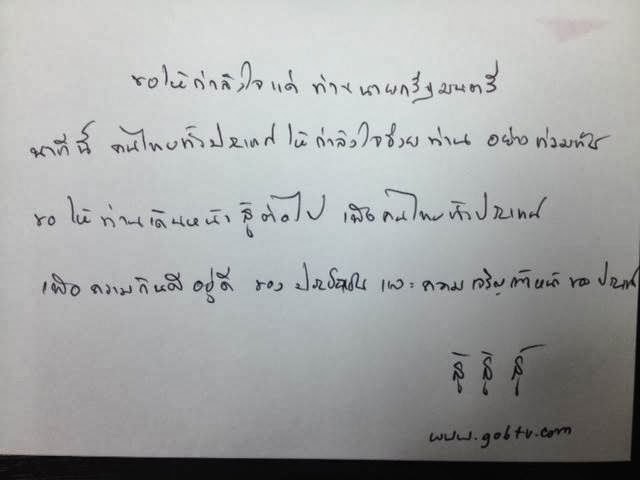 ขอให้กำลังใจแด่ ท่านนายกรัฐมนตรี
นาทีนี้ คนไทยทั่วประเทศ ให้กำลังใจช่วย ท่าน อย่าง ท่วมท้น
ขอ ให้ ท่านเดินหน้า สู้ต่อไป เพื่อคนไทยทั่วประเทศ
เพื่อ ความกินดี อยู่ดี ของ ประชาชน และ ความเจริญก้าวหน้า ของ ประเทศ
สู้ สู้ สู้
www.gobtv.com